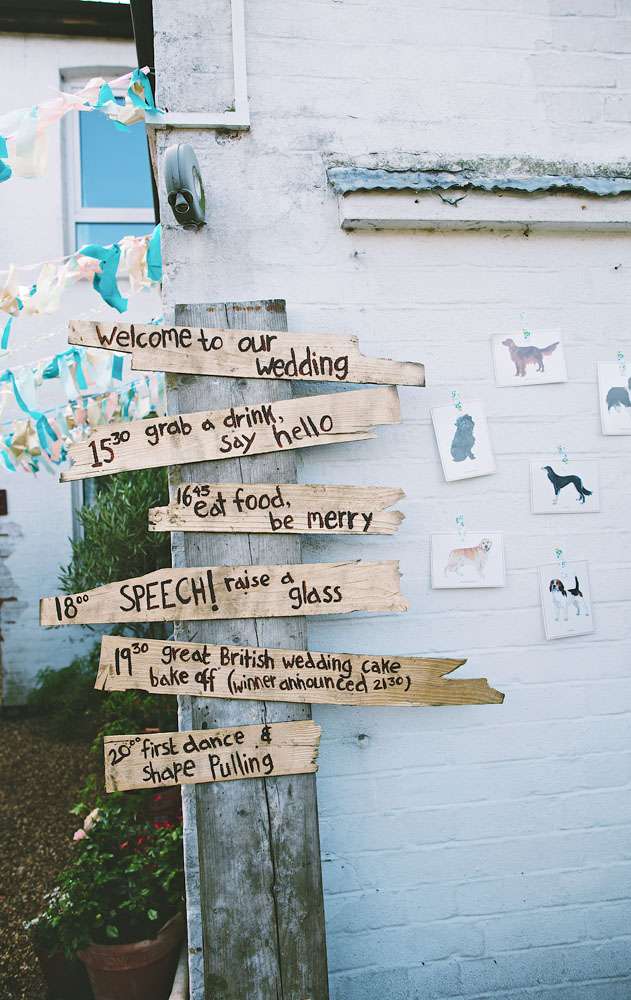 Welcome to our
wedding
15³⁰ grab a drink,
say hello
16⁴⁵ eat food,
be merry
18⁰⁰ SPEECH! raise a
glass
19³⁰ great British wedding cake
bake off (winner announced 21³⁰)
20⁰⁰ first dance &
shape Pulling